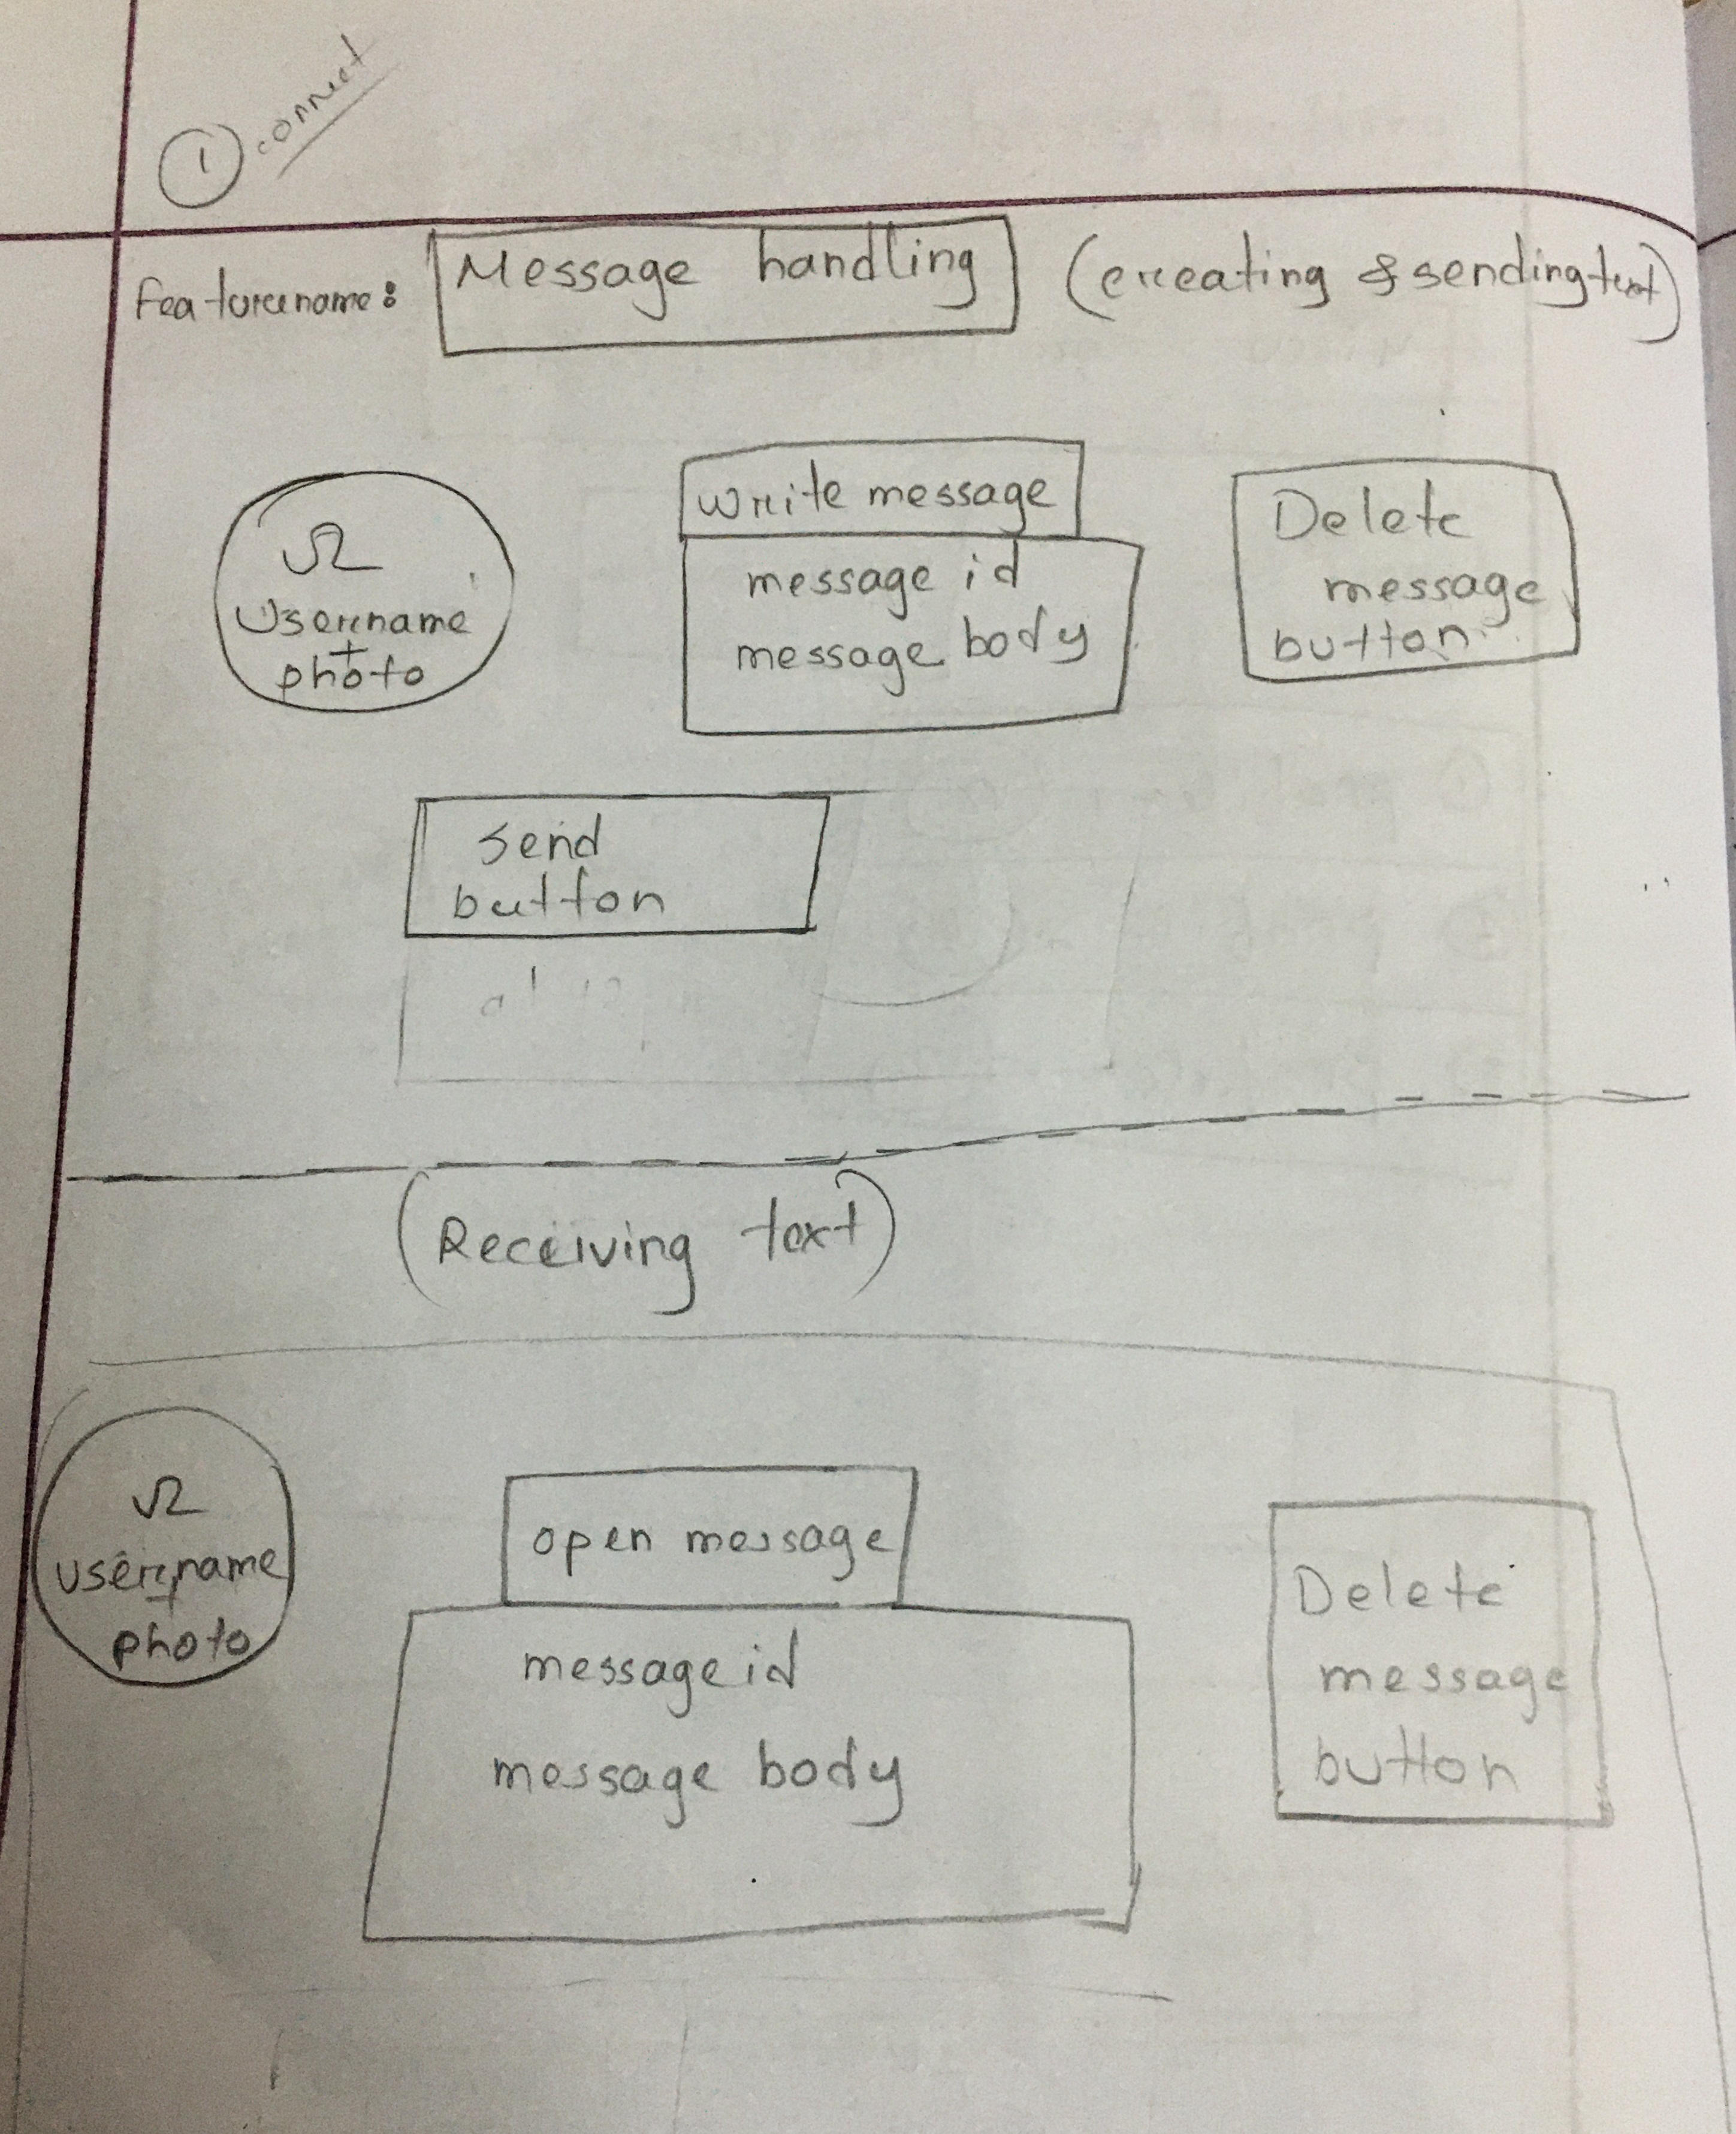 1 connect
Feature name: Message handling (creating & sending text)
Username
+
photo
Write message
message id
message body
Delete
message
button
Send
button
(Receiving text)
username
+
photo
open message
message id
message body
Delete
message
button